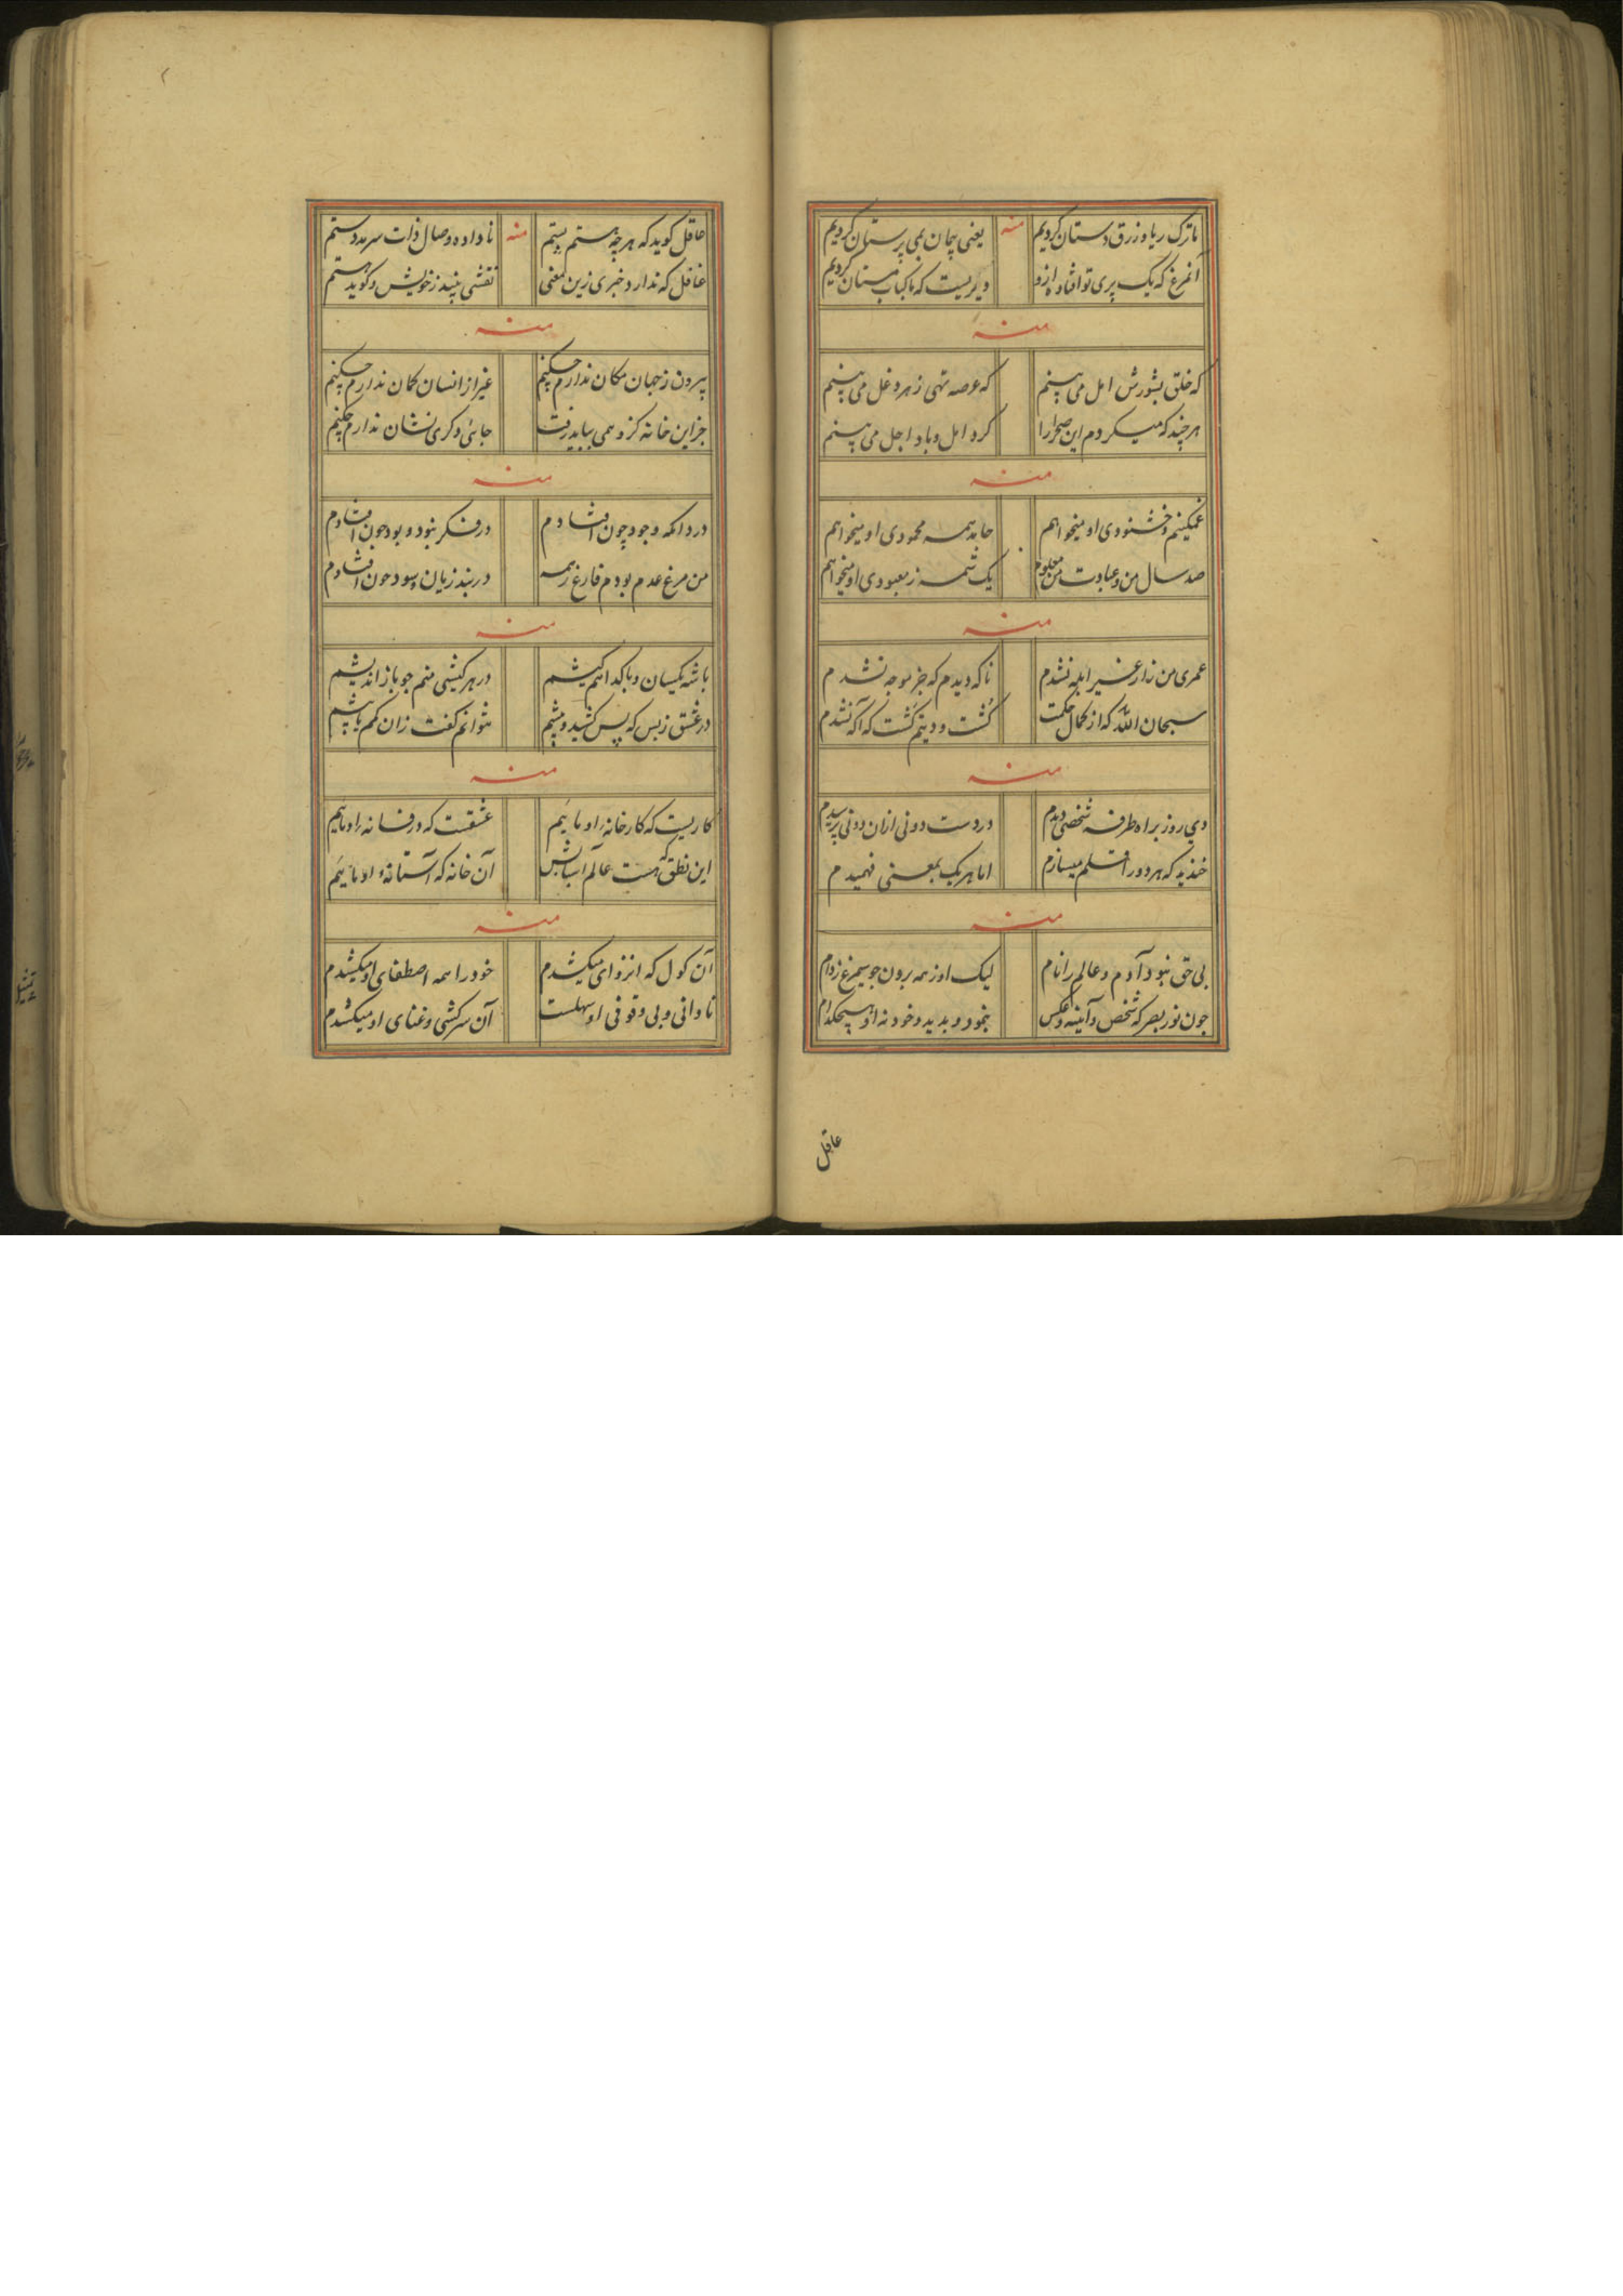 ما ترک ریا و زرق و دستان کردیم
منه
یعنی بجان می پرستان کردیم
آنمرغ که یک پری تو افتاد ازو
دیریست که ما کباب مستان کردیم
منه
که خلق بشورش امل می بینم
که عرصه تهی ز هر دغل می بینم
هر چند که میکردم این صحرا را
کرد امل و باد اجل می بینم
منه
غمکینم و خشنودی او میخواهم
حامد همه محمودی او میخواهم
صد سال من و عبادت من معلوم
یک شمه ز معبودی او میخواهم
منه
عمری من زار غیر ابله نشدم
ناکه دیدم که جز موجه نشدم
سبحان الله که از کمال حکمت
کشت و دیتم کشت که آکه نشدم
منه
دی روز براه طرفه شخصی دیدم
در دست دوئی ازان دوئی پرسیدم
خندید که هر دو را قلم میسازم
اما هر یک بمعنی فهمیدم
منه
بی حق نبود آدم و عالم را نام
لیک او ز همه برون چو سیمرغ ز دام
چون نور بصر که شخص و آینه و عکس
بنمود و بدید و خود نه او هیچکدام
عاقل
عاقل کوید که هر چه هستم پستم
منه
نا داده وصال ذات سرمد دستم
غافل که ندارد خبری زین معنی
نقشی بیند ز خویش و کوید هستم
منه
بیرون ز جهان مکان ندارم چکنم
غیر از انسان کمان ندارم چکنم
جز این خانه کزو همی باید رفت
جائی دکری نشان ندارم چکنم
منه
دردا که وجود چون افتادم
در فکر نبود و بود چون افتادم
من مرغ عدم بودم فارغ ز همه
در بند زیان و سود چون افتادم
منه
با شه یکسان و با کدا هم کیشم
در هر کیشی منم چو باز اندیشم
در عشق ز بس که پس کشید و پیشم
نتوانم کفت زان کمم یا بیشم
منه
کاریست که کارخانهٔ او مائیم
عشقست که در فسانهٔ او مائیم
این نطق که هست عالم اسبابش
آن خانه که آستانهٔ او مائیم
منه
آن کول که انزوای میکشدم
خود را همه اصطفای او میکشدم
نادانی و بی وقوفی او سهلست
آن سرکشی و غنای او میکشدم